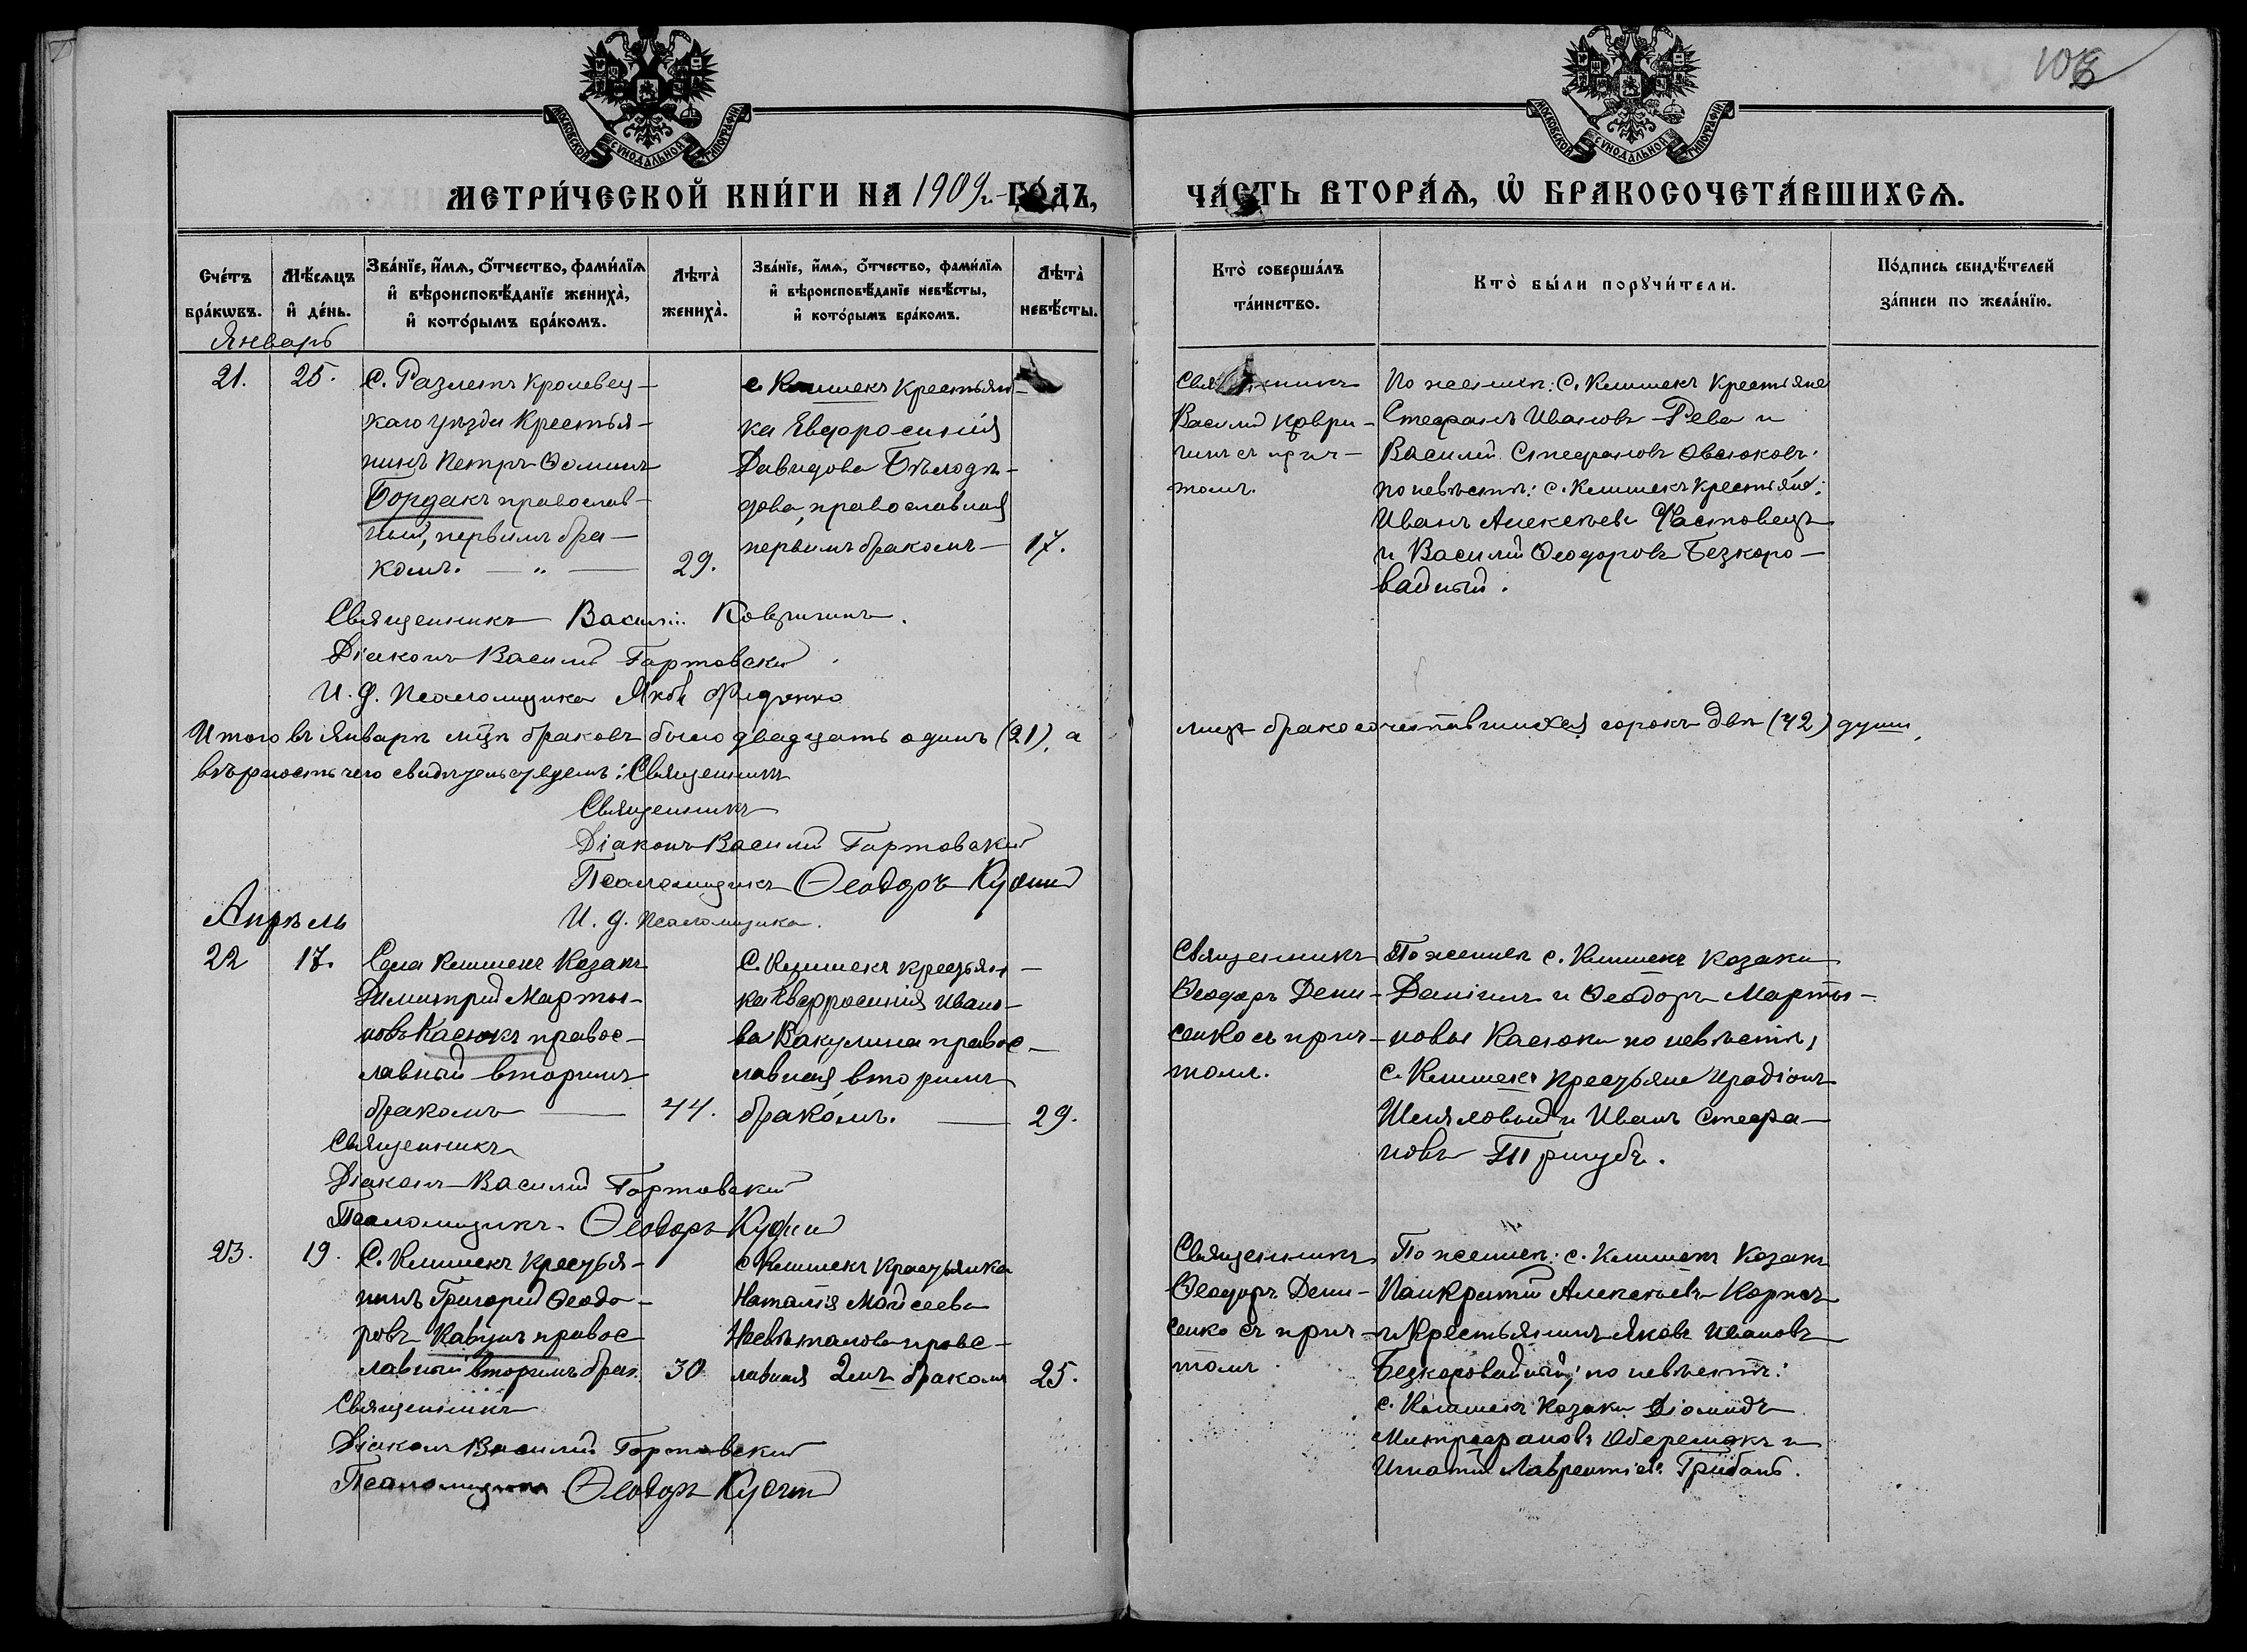 106
МОСКОВСКОЙ СѴНОДАЛЬНОЙ ТИПОГРАФІИ
МОСКОВСКОЙ СѴНОДАЛЬНОЙ ТИПОГРАФІИ
МЕТРИ́ЧЕСКОЙ КНИ́ГИ НА 1909 г. ГО́ДЪ,
ЧА́СТЬ ВТОРА́Ѧ, Ѽ БРАКОСОЧЕТА́ВШИХСѦ.
Сче́тъ бра́кѡвъ.
Мѣ́сѧцъ и҆ де́нь.
Зва́нїе, и҆́мѧ, ѻ҆́тчество, фами́лїѧ
и҆ вѣроисповѣ́данїе жениха̀,
и҆ кото́рымъ бра́комъ.
Лѣта̀ жениха̀.
Зва́нїе, и҆́мѧ, ѻ҆́тчество, фами́лїѧ
и҆ вѣроисповѣ́данїе невѣ́сты,
и҆ кото́рымъ бра́комъ.
Лѣта̀ невѣ́сты.
Кто̀ соверша́лъ
та́инство.
Кто̀ бы́ли порꙋчи́тели.
По́дпись свидѣ́телей
за́писи по жела́нїю.
Январь
21.
25.
С. Разлетъ Кролевец-
каго уѣзда Крестья-
нинъ Петръ Ѳоминъ
Бордакъ православ-
ный, первымъ бра-
комъ. — „ —
29.
с. Клишекъ Крестьян-
ка Евфросинія
Давидова Бѣлодѣ-
дова, православная
первымъ бракомъ —
17.
Священникъ
Василій Коври-
гинъ съ прич-
томъ.
По жениху: С. Клишекъ Крестьяне
Стефанъ Ивановъ Рева и
Василій Стефановъ Овсюковъ.
по невѣстѣ: с. Клишекъ Крестьяне:
Иванъ Алексѣевъ Фастовецъ
и Василій Ѳеодоровъ Безкоро-
вайный.
Священникъ Василій Ковригинъ.
Діаконъ Василій Гартовскій
И. д. Псаломщика Яковъ Фиденко
Итого въ Январѣ мцѣ браковъ было двадцать одинъ (21), а
лицъ бракосочетавшихся сорокъ двѣ (42) души,
вѣрность чего свидѣтельствуемъ: Священникъ
Священникъ
Діаконъ Василій Гартовскій
Псаломщикъ Ѳеодоръ
И. д. псаломщика.
Апрѣль
22
17.
Села Клишекъ Козакъ
Димитрій Марты-
новъ Касюкъ правос-
лавный вторымъ
бракомъ —
44.
С. Клишекъ крестьян-
ка Евфросинія Ивано-
ва Вакулина правос-
лавная, вторымъ
бракомъ. —
29.
Священникъ
Ѳеодоръ Дени-
сенко съ прич-
томъ.
По женихѣ с. Клишекъ козаки
Даніилъ и Ѳеодоръ Марты-
новы Касюки по невѣстѣ,
с. Клишекъ Крестьяне Иродіонъ
Шепяловый и Иванъ Стефа-
новъ Тригубъ.
Священникъ
Діаконъ Василій Гартовскій
Псаломщикъ Ѳеодоръ
23.
19.
С. Клишекъ Крестья-
нинъ Григорій Ѳеодо-
ровъ Кавунъ правос
лавный вторымъ брак.
30
с Клишекъ Крестьянка
Наталія Моисеева
правос-
лавная 2мъ бракомъ
25.
Священникъ
Ѳеодоръ Дени-
сенко съ прич-
томъ.
По женихѣ: с. Клишекъ Козакъ
Панкратій Алексѣевъ Коржъ
и Крестьянинъ Яковъ Ивановъ
Безкоровайный; по невѣстѣ:
с. Клишекъ козаки Діомидъ
Митрофановъ Оберемокъ и
Игнатій Лаврентіевъ Грибанъ.
Священникъ
Діаконъ Василій Гартовскій
Псаломщикъ Ѳеодоръ